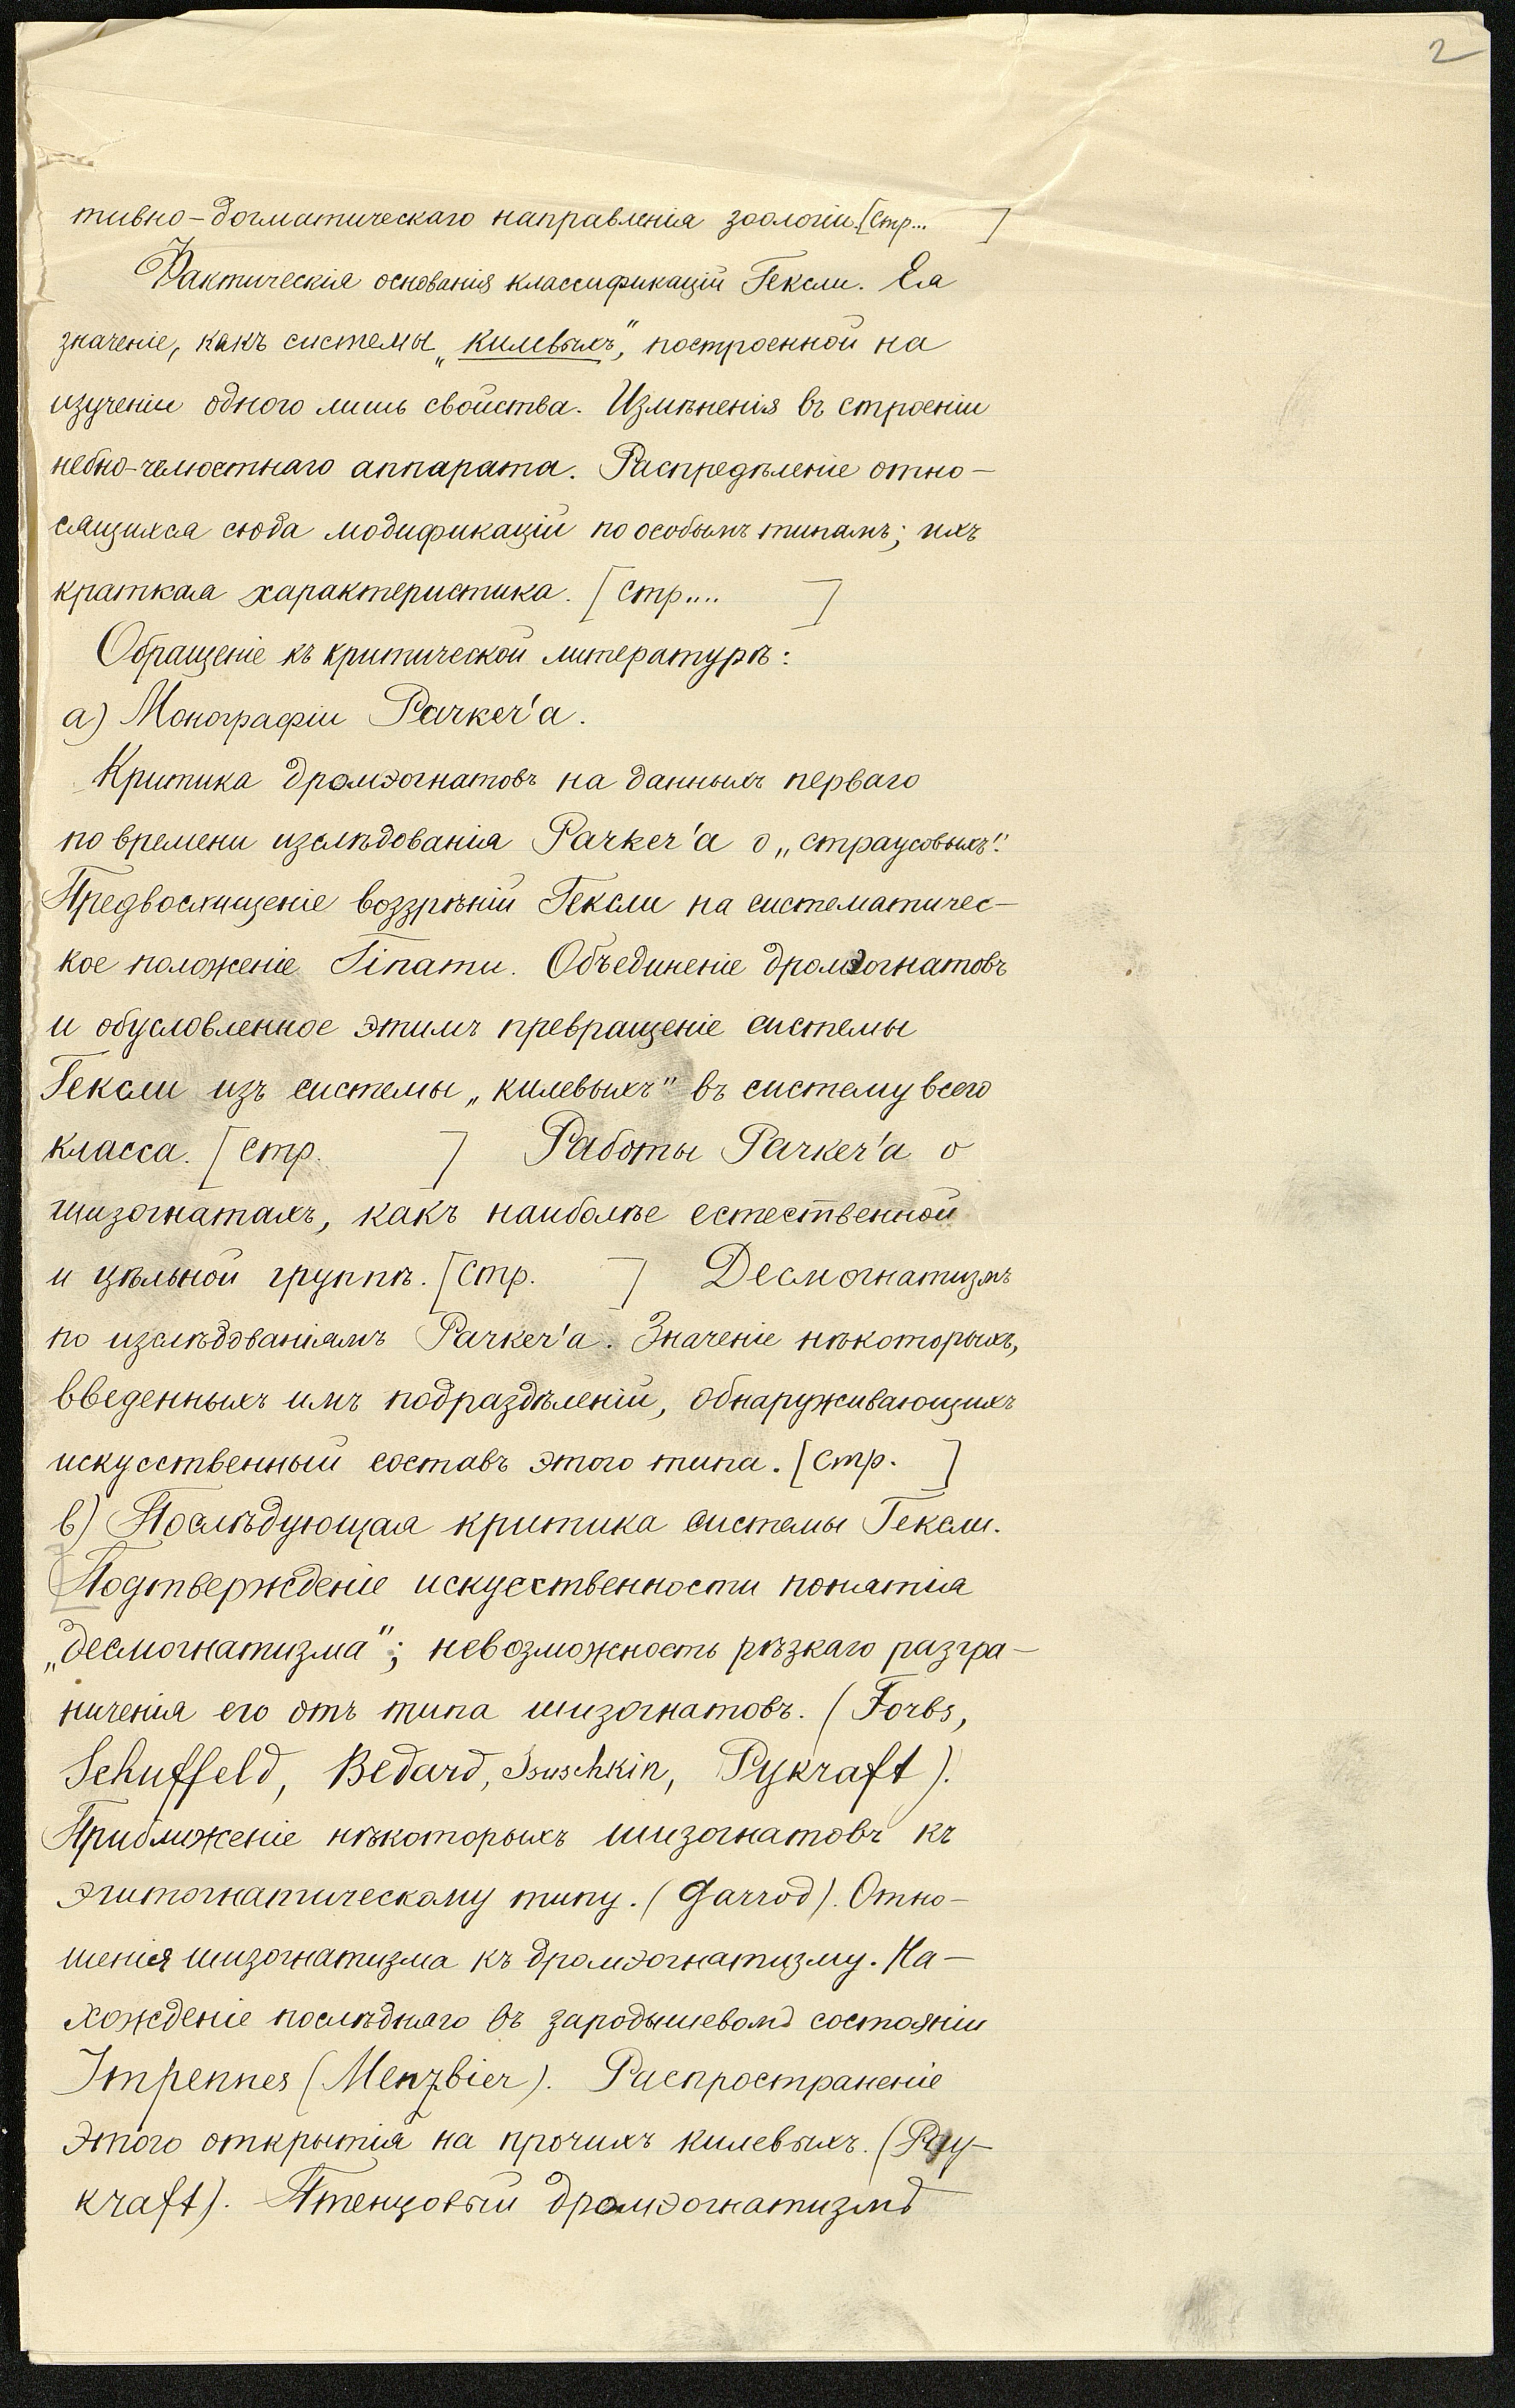 2
тивно-догматическаго направленія зоологіи. [Стр... ]
Фактическія основанія классификаціи Гексли. Ея
значеніе, какъ системы „килевыхъ", построенной на
изученіи одного лишь свойства. Измѣненія въ строеніи
небно-челюстнаго аппарата. Распредѣленіе отно-
сящихся сюда модификацій по особымъ типамъ; ихъ
краткая характеристика. [Стр.... ]
Обращеніе къ критической литературѣ:
а) Монографіи Parker'а.
Критика дромэогнатовъ на данныхъ перваго
по времени изслѣдованія Parker'а о „страусовыхъ".
Предвосхищеніе воззрѣній Гексли на систематичес-
кое положеніе Tinami. Объединеніе дромэогнатовъ
и обусловленное этимъ превращеніе системы
Гексли изъ системы „килевыхъ" въ систему всего
класса. [Стр. ] Работы Parker'а о
шизогнатахъ, какъ наиболѣе естественной
и цѣльной группѣ. [Стр. ] Десмогнатизмъ
по изслѣдованіямъ Parker'а. Значеніе нѣкоторыхъ,
введенныхъ имъ подраздѣленій, обнаруживающихъ
искусственный составъ этого типа. [Стр. ]
в) Послѣдующая критика системы Гексли.
Подтвержденіе искусственности понятія
„десмогнатизма"; невозможность рѣзкаго разгра-
ниченія его отъ типа шизогнатовъ. (Forbs,
Schuffeld, Bedard, Suschkin, Pykraft).
Приближеніе нѣкоторыхъ шизогнатовъ къ
эгитогнатическому типу. (Garrod). Отно-
шенія шизогнатизма къ дромэогнатизму. На-
хожденіе послѣдняго въ зародышевомъ состояніи
Impennes (Menzbier). Распространеніе
этого открытія на прочихъ килевыхъ. (Py-
kraft). Птенцовый дромэогнатизмъ